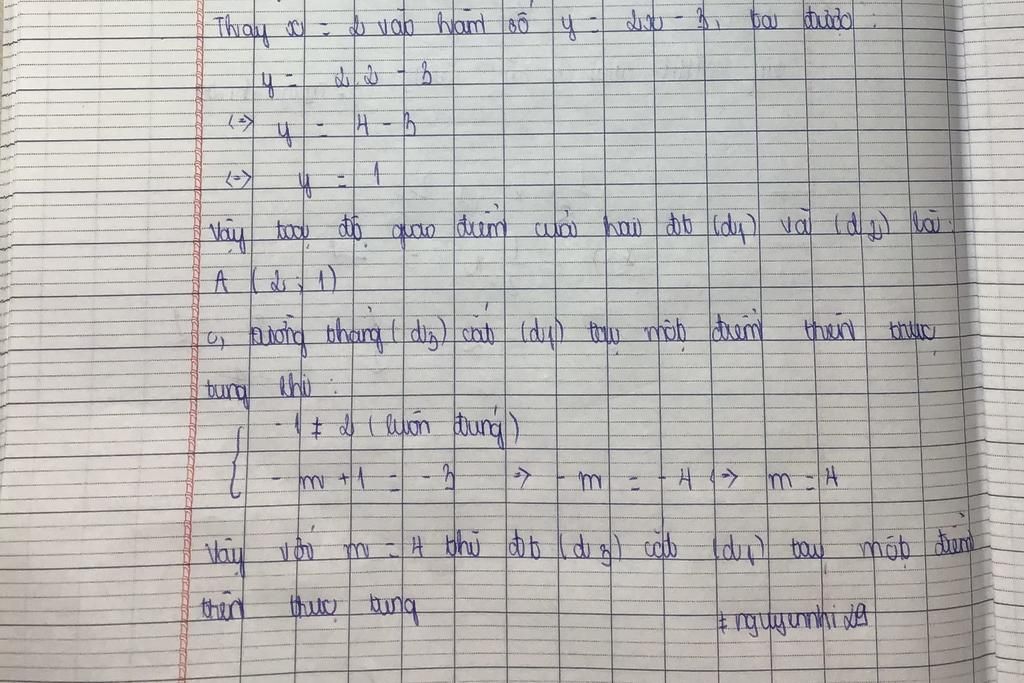 Thay x = 2 vào hàm số y = 2x - 3, ta được:
y = 2.2 - 3
<=> y = 4 - 3
<=> y = 1
Vậy toạ độ giao điểm của hai đt (d1) và (d2) là:
A (2; 1)
c, Đường thẳng (d3) cắt (d1) tại một điểm trên trục
tung khi:
- 1 ≠ 2 (luôn đúng)
- m + 1 = - 3 => - m = - 4 <=> m = 4
Vậy với m = 4 thì đt (d3) cắt (d1) tại một điểm
trên trục tung
# nguyennhi29